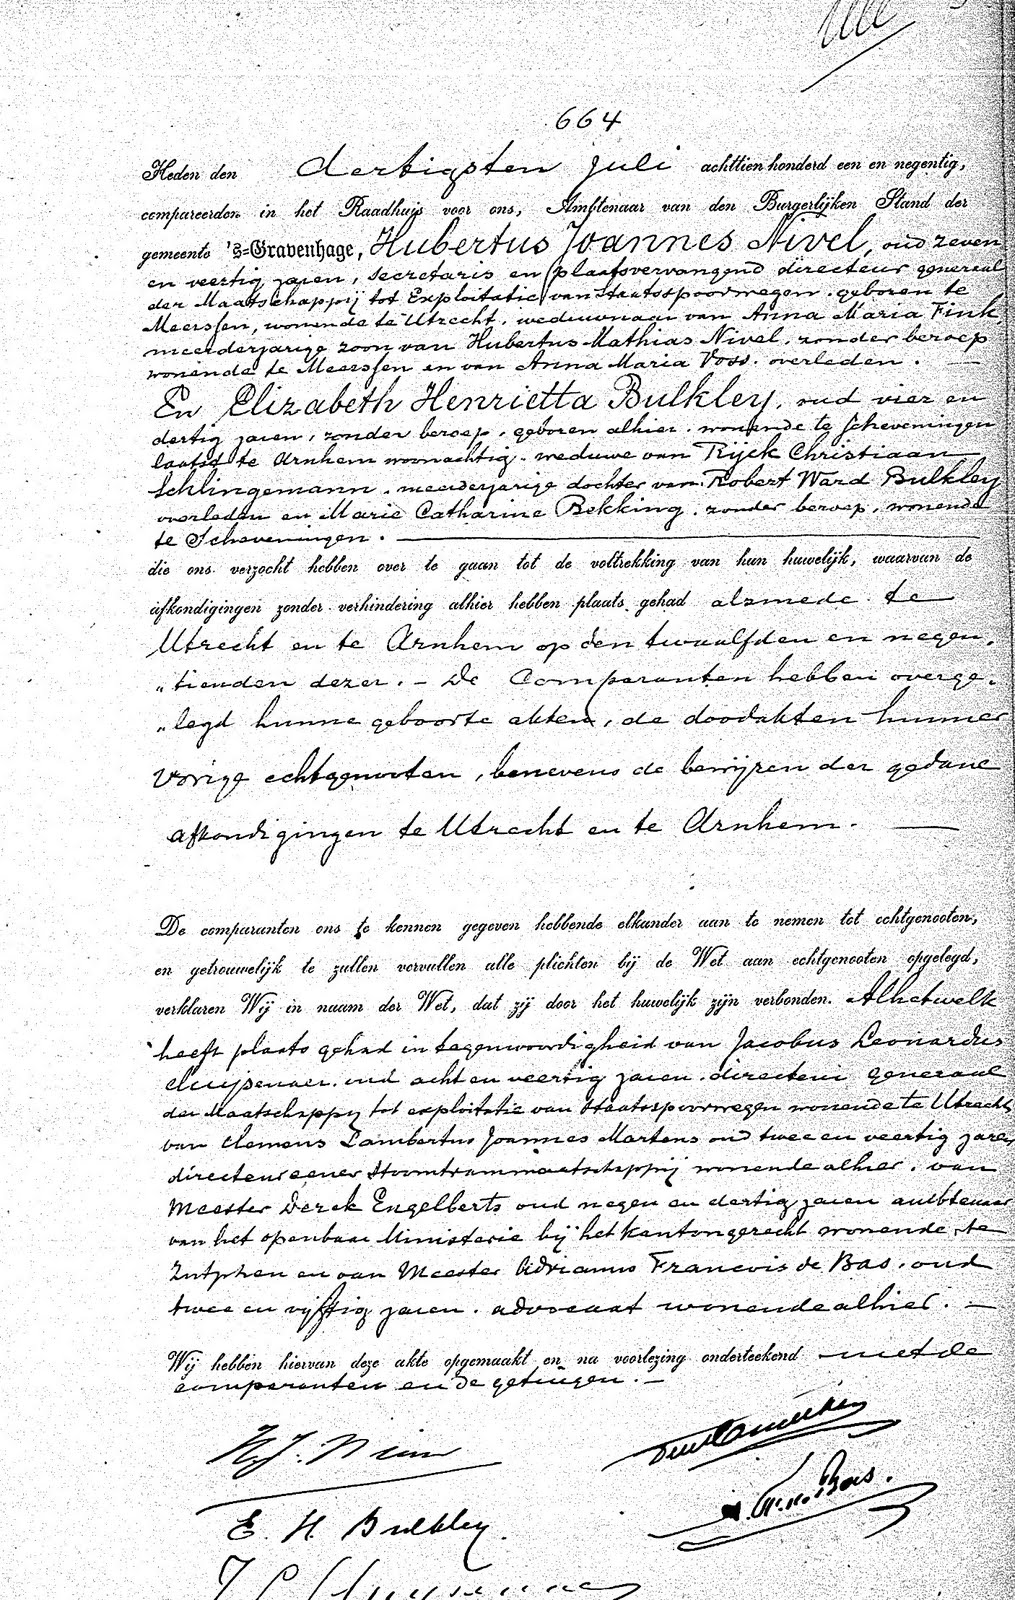 664
Heden den dertigsten Juli achttien honderd een en negentig,
compareerden in het Raadhuis voor ons, Ambtenaar van den Burgerlijken Stand der
gemeente 's-Gravenhage, Hubertus Joannes Nivel, oud zeven
en veertig jaren, secretaris en plaatsvervangend directeur generaal
der Maatschappij tot Exploitatie van Staatsspoorwegen. geboren te
Meerssen, wonende te Utrecht, weduwnaar van Anna Maria Fink,
meerderjarige zoon van Hubertus Mathias Nivel, zonder beroep
wonende te Meerssen en van Anna Maria Voss. overleden. —
En Elizabeth Henrietta Bulkley, oud vier en
dertig jaren, zonder beroep, geboren alhier. wonende te Scheveningen
laatst te Arnhem woonachtig. weduwe van Rijck Christiaan
Schlingemann. meerderjarige dochter van Robert Ward Bulkley
overleden en Marie Catharine Bekking. zonder beroep. wonende
te Scheveningen. —
die ons verzocht hebben over te gaan tot de voltrekking van hun huwelijk, waarvan de
afkondigingen zonder verhindering alhier hebben plaats gehad alsmede te
Utrecht en te Arnhem op den twaalfden en negen,
„tienden dezer. — De Comparanten hebben overge„
„legd hunne geboorte akten, de doodakten hunner
vorige echtgenooten, benevens de bewijzen der gedane
afkondigingen te Utrecht en te Arnhem. —
De comparanten ons te kennen gegeven hebbende elkander aan te nemen tot echtgenooten,
en getrouwelijk te zullen vervullen alle plichten bij de Wet aan echtgenooten opgelegd,
verklaren Wij in naam der Wet, dat zij door het huwelijk zijn verbonden. Alhetwelk
heeft plaats gehad in tegenwoordigheid van Jacobus Leonardus
Cluijsenaer. oud acht en veertig jaren. directeur generaal
der Maatschappij tot exploitatie van Staatsspoorwegen wonende te Utrecht,
van Clemens Lambertus Joannes Martens oud twee en veertig jaren
directeur eener Stoomtrammaatschappij wonende alhier. van
Meester Derck Engelberts oud negen en dertig jaren ambtenaar
van het openbaar Ministerie bij het kantongerecht wonende te
Zutphen en van Meester Adrianus Francois de Bas. oud
twee en vijftig jaren. advocaat wonende alhier. —
Wij hebben hiervan deze akte opgemaakt en na voorlezing onderteekend met de
comparanten en de getuigen. —
H. J. Nivel
E. H. Bulkley.